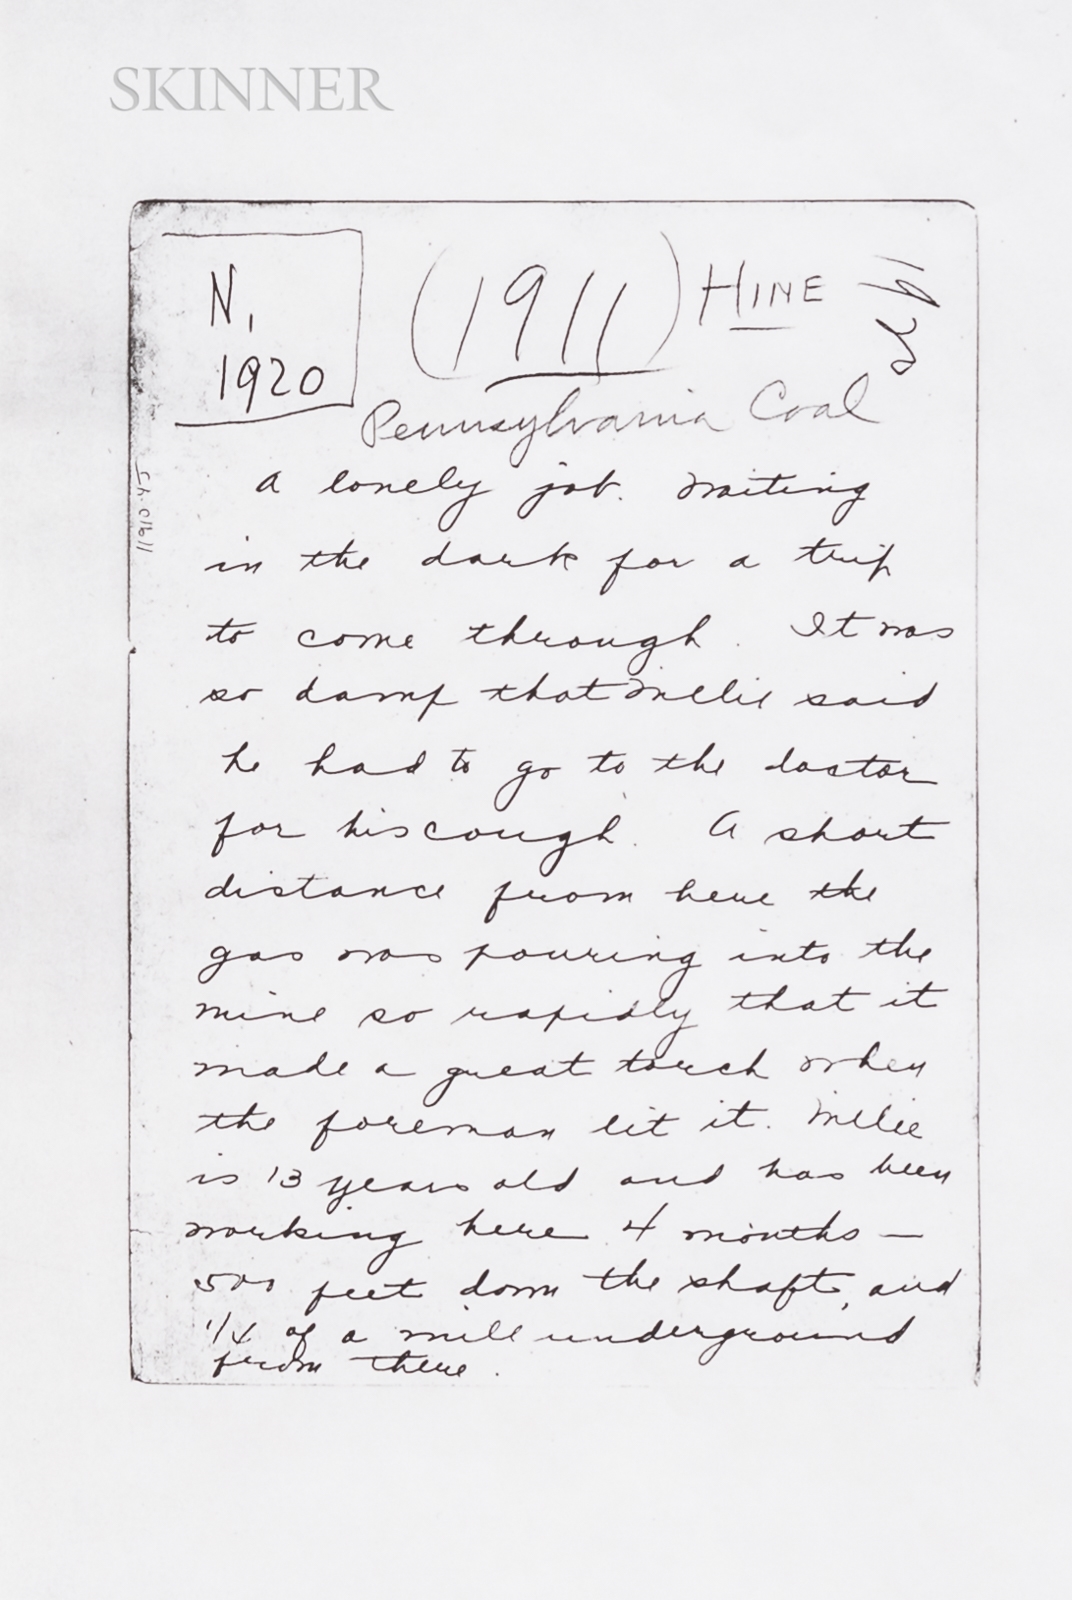 SKINNER
N,
1920
(1911) HINE
Pennsylvania Coal
A lonely job. Waiting
in the dark for a trip
to come through. It was
so damp that Willie said
he had to go to the doctor
for his cough. A short
distance from here the
gas was pouring into the
mine so rapidly that it
made a great torch when
the foreman lit it. Willie
is 13 years old and has been
working here 4 months —
500 feet down the shaft, and
1/4 of a mile underground
from there.